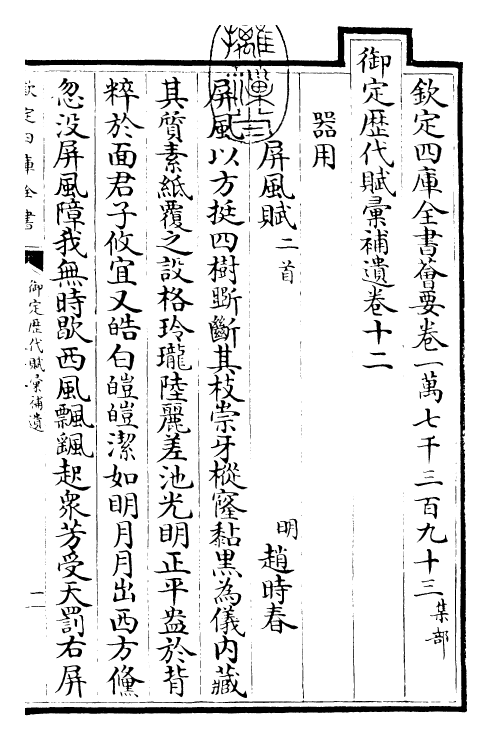 欽定四庫全書薈要卷一萬七千三百九十三集部
御定歴代賦彙補遺卷十二
器用
屏風賦二首 明趙時春
屏風以方挺四樹斲斷其枝崇牙樅窿黏黑為儀内藏
其質素紙覆之設格玲瓏陸麗差池光明正平盎於背
粹於面君子攸宜又皓白皚皚潔如明月月出西方儵
忽没屏風障我無時歇西風飄颻起衆芳受天罰右屏
欽定四庫全書
御定歴代賦彙補遺